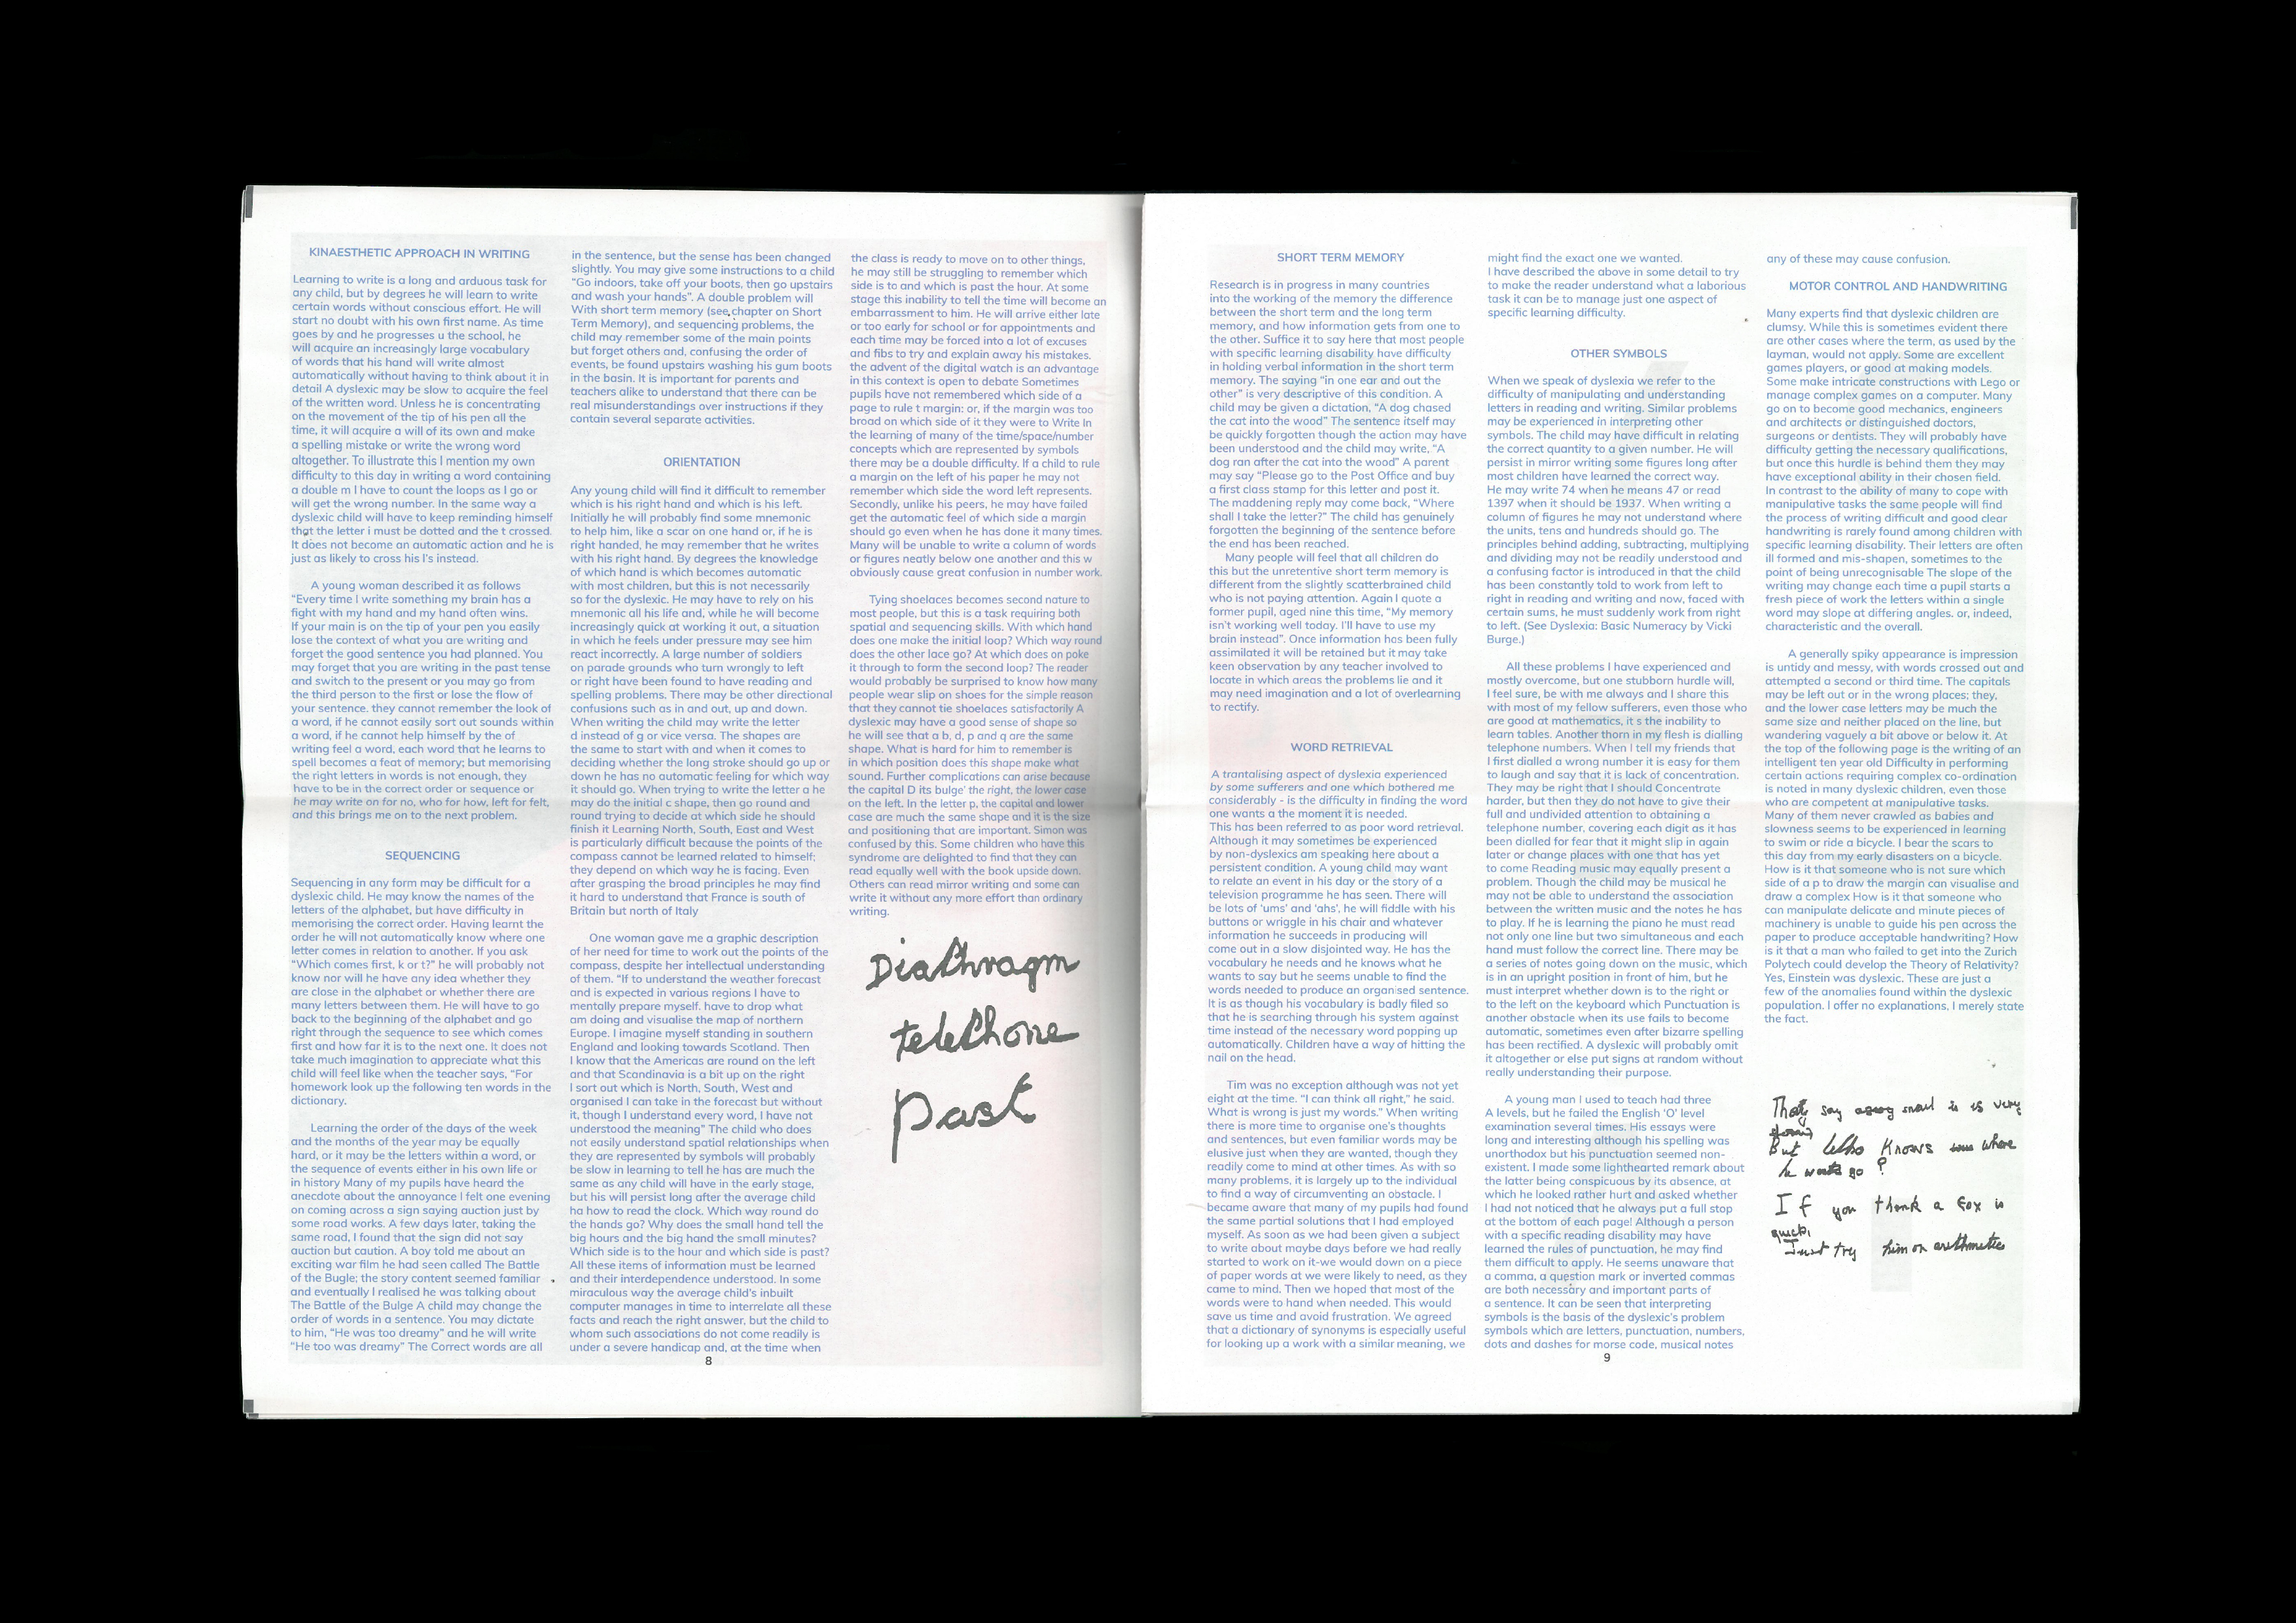 KINAESTHETIC APPROACH IN WRITING
Learning to write is a long and arduous task for
any child, but by degrees he will learn to write
certain words without conscious effort. He will
start no doubt with his own first name. As time
goes by and he progresses u the school, he
will acquire an increasingly large vocabulary
of words that his hand will write almost
automatically without having to think about it in
detail A dyslexic may be slow to acquire the feel
of the written word. Unless he is concentrating
on the movement of the tip of his pen all the
time, it will acquire a will of its own and make
a spelling mistake or write the wrong word
altogether. To illustrate this I mention my own
difficulty to this day in writing a word containing
a double m I have to count the loops as I go or
will get the wrong number. In the same way a
dyslexic child will have to keep reminding himself
that the letter i must be dotted and the t crossed.
It does not become an automatic action and he is
just as likely to cross his l's instead.
A young woman described it as follows
"Every time I write something my brain has a
fight with my hand and my hand often wins.
If your main is on the tip of your pen you easily
lose the context of what you are writing and
forget the good sentence you had planned. You
may forget that you are writing in the past tense
and switch to the present or you may go from
the third person to the first or lose the flow of
your sentence. they cannot remember the look of
a word, if he cannot easily sort out sounds within
a word, if he cannot help himself by the of
writing feel a word, each word that he learns to
spell becomes a feat of memory; but memorising
the right letters in words is not enough, they
have to be in the correct order or sequence or
he may write on for no, who for how, left for felt,
and this brings me on to the next problem.
SEQUENCING
Sequencing in any form may be difficult for a
dyslexic child. He may know the names of the
letters of the alphabet, but have difficulty in
memorising the correct order. Having learnt the
order he will not automatically know where one
letter comes in relation to another. If you ask
"Which comes first, k or t?" he will probably not
know nor will he have any idea whether they
are close in the alphabet or whether there are
many letters between them. He will have to go
back to the beginning of the alphabet and go
right through the sequence to see which comes
first and how far it is to the next one. It does not
take much imagination to appreciate what this
child will feel like when the teacher says, "For
homework look up the following ten words in the
dictionary.
Learning the order of the days of the week
and the months of the year may be equally
hard, or it may be the letters within a word, or
the sequence of events either in his own life or
in history Many of my pupils have heard the
anecdote about the annoyance I felt one evening
on coming across a sign saying auction just by
some road works. A few days later, taking the
same road, I found that the sign did not say
auction but caution. A boy told me about an
exciting war film he had seen called The Battle
of the Bugle; the story content seemed familiar
and eventually I realised he was talking about
The Battle of the Bulge A child may change the
order of words in a sentence. You may dictate
to him, "He was too dreamy" and he will write
"He too was dreamy" The Correct words are all
in the sentence, but the sense has been changed
slightly. You may give some instructions to a child
"Go indoors, take off your boots, then go upstairs
and wash your hands". A double problem will
With short term memory (see chapter on Short
Term Memory), and sequencing problems, the
child may remember some of the main points
but forget others and, confusing the order of
events, be found upstairs washing his gum boots
in the basin. It is important for parents and
teachers alike to understand that there can be
real misunderstandings over instructions if they
contain several separate activities.
ORIENTATION
Any young child will find it difficult to remember
which is his right hand and which is his left.
Initially he will probably find some mnemonic
to help him, like a scar on one hand or, if he is
right handed, he may remember that he writes
with his right hand. By degrees the knowledge
of which hand is which becomes automatic
with most children, but this is not necessarily
so for the dyslexic. He may have to rely on his
mnemonic all his life and, while he will become
increasingly quick at working it out, a situation
in which he feels under pressure may see him
react incorrectly. A large number of soldiers
on parade grounds who turn wrongly to left
or right have been found to have reading and
spelling problems. There may be other directional
confusions such as in and out, up and down.
When writing the child may write the letter
d instead of g or vice versa. The shapes are
the same to start with and when it comes to
deciding whether the long stroke should go up or
down he has no automatic feeling for which way
it should go. When trying to write the letter a he
may do the initial c shape, then go round and
round trying to decide at which side he should
finish it Learning North, South, East and West
is particularly difficult because the points of the
compass cannot be learned related to himself;
they depend on which way he is facing. Even
after grasping the broad principles he may find
it hard to understand that France is south of
Britain but north of Italy
One woman gave me a graphic description
of her need for time to work out the points of the
compass, despite her intellectual understanding
of them. "If to understand the weather forecast
and is expected in various regions I have to
mentally prepare myself. have to drop what
am doing and visualise the map of northern
Europe. I imagine myself standing in southern
England and looking towards Scotland. Then
I know that the Americas are round on the left
and that Scandinavia is a bit up on the right
I sort out which is North, South, West and
organised I can take in the forecast but without
it, though I understand every word, I have not
understood the meaning" The child who does
not easily understand spatial relationships when
they are represented by symbols will probably
be slow in learning to tell he has are much the
same as any child will have in the early stage,
but his will persist long after the average child
ha how to read the clock. Which way round do
the hands go? Why does the small hand tell the
big hours and the big hand the small minutes?
Which side is to the hour and which side is past?
All these items of information must be learned
and their interdependence understood. In some
miraculous way the average child's inbuilt
computer manages in time to interrelate all these
facts and reach the right answer, but the child to
whom such associations do not come readily is
under a severe handicap and, at the time when
the class is ready to move on to other things,
he may still be struggling to remember which
side is to and which is past the hour. At some
stage this inability to tell the time will become an
embarrassment to him. He will arrive either late
or too early for school or for appointments and
each time may be forced into a lot of excuses
and fibs to try and explain away his mistakes.
the advent of the digital watch is an advantage
in this context is open to debate Sometimes
pupils have not remembered which side of a
page to rule t margin: or, if the margin was too
broad on which side of it they were to Write In
the learning of many of the time/space/number
concepts which are represented by symbols
there may be a double difficulty. If a child to rule
a margin on the left of his paper he may not
remember which side the word left represents.
Secondly, unlike his peers, he may have failed
get the automatic feel of which side a margin
should go even when he has done it many times.
Many will be unable to write a column of words
or figures neatly below one another and this w
obviously cause great confusion in number work.
Tying shoelaces becomes second nature to
most people, but this is a task requiring both
spatial and sequencing skills. With which hand
does one make the initial loop? Which way round
does the other lace go? At which does on poke
it through to form the second loop? The reader
would probably be surprised to know how many
people wear slip on shoes for the simple reason
that they cannot tie shoelaces satisfactorily A
dyslexic may have a good sense of shape so
he will see that a b, d, p and q are the same
shape. What is hard for him to remember is
in which position does this shape make what
sound. Further complications can arise because
the capital D its bulge' the right, the lower case
on the left. In the letter p, the capital and lower
case are much the same shape and it is the size
and positioning that are important. Simon was
confused by this. Some children who have this
syndrome are delighted to find that they can
read equally well with the book upside down.
Others can read mirror writing and some can
write it without any more effort than ordinary
writing.
DiaPhragm
telePhone
past
8
SHORT TERM MEMORY
Research is in progress in many countries
into the working of the memory the difference
between the short term and the long term
memory, and how information gets from one to
the other. Suffice it to say here that most people
with specific learning disability have difficulty
in holding verbal information in the short term
memory. The saying "in one ear and out the
other" is very descriptive of this condition. A
child may be given a dictation, "A dog chased
the cat into the wood" The sentence itself may
be quickly forgotten though the action may have
been understood and the child may write, "A
dog ran after the cat into the wood" A parent
may say "Please go to the Post Office and buy
a first class stamp for this letter and post it.
The maddening reply may come back, "Where
shall I take the letter?" The child has genuinely
forgotten the beginning of the sentence before
the end has been reached.
Many people will feel that all children do
this but the unretentive short term memory is
different from the slightly scatterbrained child
who is not paying attention. Again I quote a
former pupil, aged nine this time, "My memory
isn't working well today. I'll have to use my
brain instead". Once information has been fully
assimilated it will be retained but it may take
keen observation by any teacher involved to
locate in which areas the problems lie and it
may need imagination and a lot of overlearning
to rectify.
WORD RETRIEVAL
A trantalising aspect of dyslexia experienced
by some sufferers and one which bothered me
considerably - is the difficulty in finding the word
one wants a the moment it is needed.
This has been referred to as poor word retrieval.
Although it may sometimes be experienced
by non-dyslexics am speaking here about a
persistent condition. A young child may want
to relate an event in his day or the story of a
television programme he has seen. There will
be lots of 'ums' and 'ahs', he will fiddle with his
buttons or wriggle in his chair and whatever
information he succeeds in producing will
come out in a slow disjointed way. He has the
vocabulary he needs and he knows what he
wants to say but he seems unable to find the
words needed to produce an organised sentence.
It is as though his vocabulary is badly filed so
that he is searching through his system against
time instead of the necessary word popping up
automatically. Children have a way of hitting the
nail on the head.
Tim was no exception although was not yet
eight at the time. "I can think all right," he said.
What is wrong is just my words." When writing
there is more time to organise one's thoughts
and sentences, but even familiar words may be
elusive just when they are wanted, though they
readily come to mind at other times. As with so
many problems, it is largely up to the individual
to find a way of circumventing an obstacle. I
became aware that many of my pupils had found
the same partial solutions that I had employed
myself. As soon as we had been given a subject
to write about maybe days before we had really
started to work on it-we would down on a piece
of paper words at we were likely to need, as they
came to mind. Then we hoped that most of the
words were to hand when needed. This would
save us time and avoid frustration. We agreed
that a dictionary of synonyms is especially useful
for looking up a work with a similar meaning, we
might find the exact one we wanted.
I have described the above in some detail to try
to make the reader understand what a laborious
task it can be to manage just one aspect of
specific learning difficulty.
OTHER SYMBOLS
When we speak of dyslexia we refer to the
difficulty of manipulating and understanding
letters in reading and writing. Similar problems
may be experienced in interpreting other
symbols. The child may have difficult in relating
the correct quantity to a given number. He will
persist in mirror writing some figures long after
most children have learned the correct way.
He may write 74 when he means 47 or read
1397 when it should be 1937. When writing a
column of figures he may not understand where
the units, tens and hundreds should go. The
principles behind adding, subtracting, multiplying
and dividing may not be readily understood and
a confusing factor is introduced in that the child
has been constantly told to work from left to
right in reading and writing and now, faced with
certain sums, he must suddenly work from right
to left. (See Dyslexia: Basic Numeracy by Vicki
Burge.)
All these problems I have experienced and
mostly overcome, but one stubborn hurdle will,
I feel sure, be with me always and I share this
with most of my fellow sufferers, even those who
are good at mathematics, it s the inability to
learn tables. Another thorn in my flesh is dialling
telephone numbers. When I tell my friends that
I first dialled a wrong number it is easy for them
to laugh and say that it is lack of concentration.
They may be right that I should Concentrate
harder, but then they do not have to give their
full and undivided attention to obtaining a
telephone number, covering each digit as it has
been dialled for fear that it might slip in again
later or change places with one that has yet
to come Reading music may equally present a
problem. Though the child may be musical he
may not be able to understand the association
between the written music and the notes he has
to play. If he is learning the piano he must read
not only one line but two simultaneous and each
hand must follow the correct line. There may be
a series of notes going down on the music, which
is in an upright position in front of him, but he
must interpret whether down is to the right or
to the left on the keyboard which Punctuation is
another obstacle when its use fails to become
automatic, sometimes even after bizarre spelling
has been rectified. A dyslexic will probably omit
it altogether or else put signs at random without
really understanding their purpose.
A young man I used to teach had three
A levels, but he failed the English 'O' level
examination several times. His essays were
long and interesting although his spelling was
unorthodox but his punctuation seemed non-
existent. I made some lighthearted remark about
the latter being conspicuous by its absence, at
which he looked rather hurt and asked whether
I had not noticed that he always put a full stop
at the bottom of each page! Although a person
with a specific reading disability may have
learned the rules of punctuation, he may find
them difficult to apply. He seems unaware that
a comma, a question mark or inverted commas
are both necessary and important parts of
a sentence. It can be seen that interpreting
symbols is the basis of the dyslexic's problem
symbols which are letters, punctuation, numbers,
dots and dashes for morse code, musical notes
any of these may cause confusion.
MOTOR CONTROL AND HANDWRITING
Many experts find that dyslexic children are
clumsy. While this is sometimes evident there
are other cases where the term, as used by the
layman, would not apply. Some are excellent
games players, or good at making models.
Some make intricate constructions with Lego or
manage complex games on a computer. Many
go on to become good mechanics, engineers
and architects or distinguished doctors,
surgeons or dentists. They will probably have
difficulty getting the necessary qualifications,
but once this hurdle is behind them they may
have exceptional ability in their chosen field.
In contrast to the ability of many to cope with
manipulative tasks the same people will find
the process of writing difficult and good clear
handwriting is rarely found among children with
specific learning disability. Their letters are often
ill formed and mis-shapen, sometimes to the
point of being unrecognisable The slope of the
writing may change each time a pupil starts a
fresh piece of work the letters within a single
word may slope at differing angles. or, indeed,
characteristic and the overall.
A generally spiky appearance is impression
is untidy and messy, with words crossed out and
attempted a second or third time. The capitals
may be left out or in the wrong places; they,
and the lower case letters may be much the
same size and neither placed on the line, but
wandering vaguely a bit above or below it. At
the top of the following page is the writing of an
intelligent ten year old Difficulty in performing
certain actions requiring complex co-ordination
is noted in many dyslexic children, even those
who are competent at manipulative tasks.
Many of them never crawled as babies and
slowness seems to be experienced in learning
to swim or ride a bicycle. I bear the scars to
this day from my early disasters on a bicycle.
How is it that someone who is not sure which
side of a p to draw the margin can visualise and
draw a complex How is it that someone who
can manipulate delicate and minute pieces of
machinery is unable to guide his pen across the
paper to produce acceptable handwriting? How
is it that a man who failed to get into the Zurich
Polytech could develop the Theory of Relativity?
Yes, Einstein was dyslexic. These are just a
few of the anomalies found within the dyslexic
population. I offer no explanations, I merely state
the fact.
say snail is very
But Who Knows where
he go ?
If you thenk a Fox is
quick,
Just try him on arithmetic
9